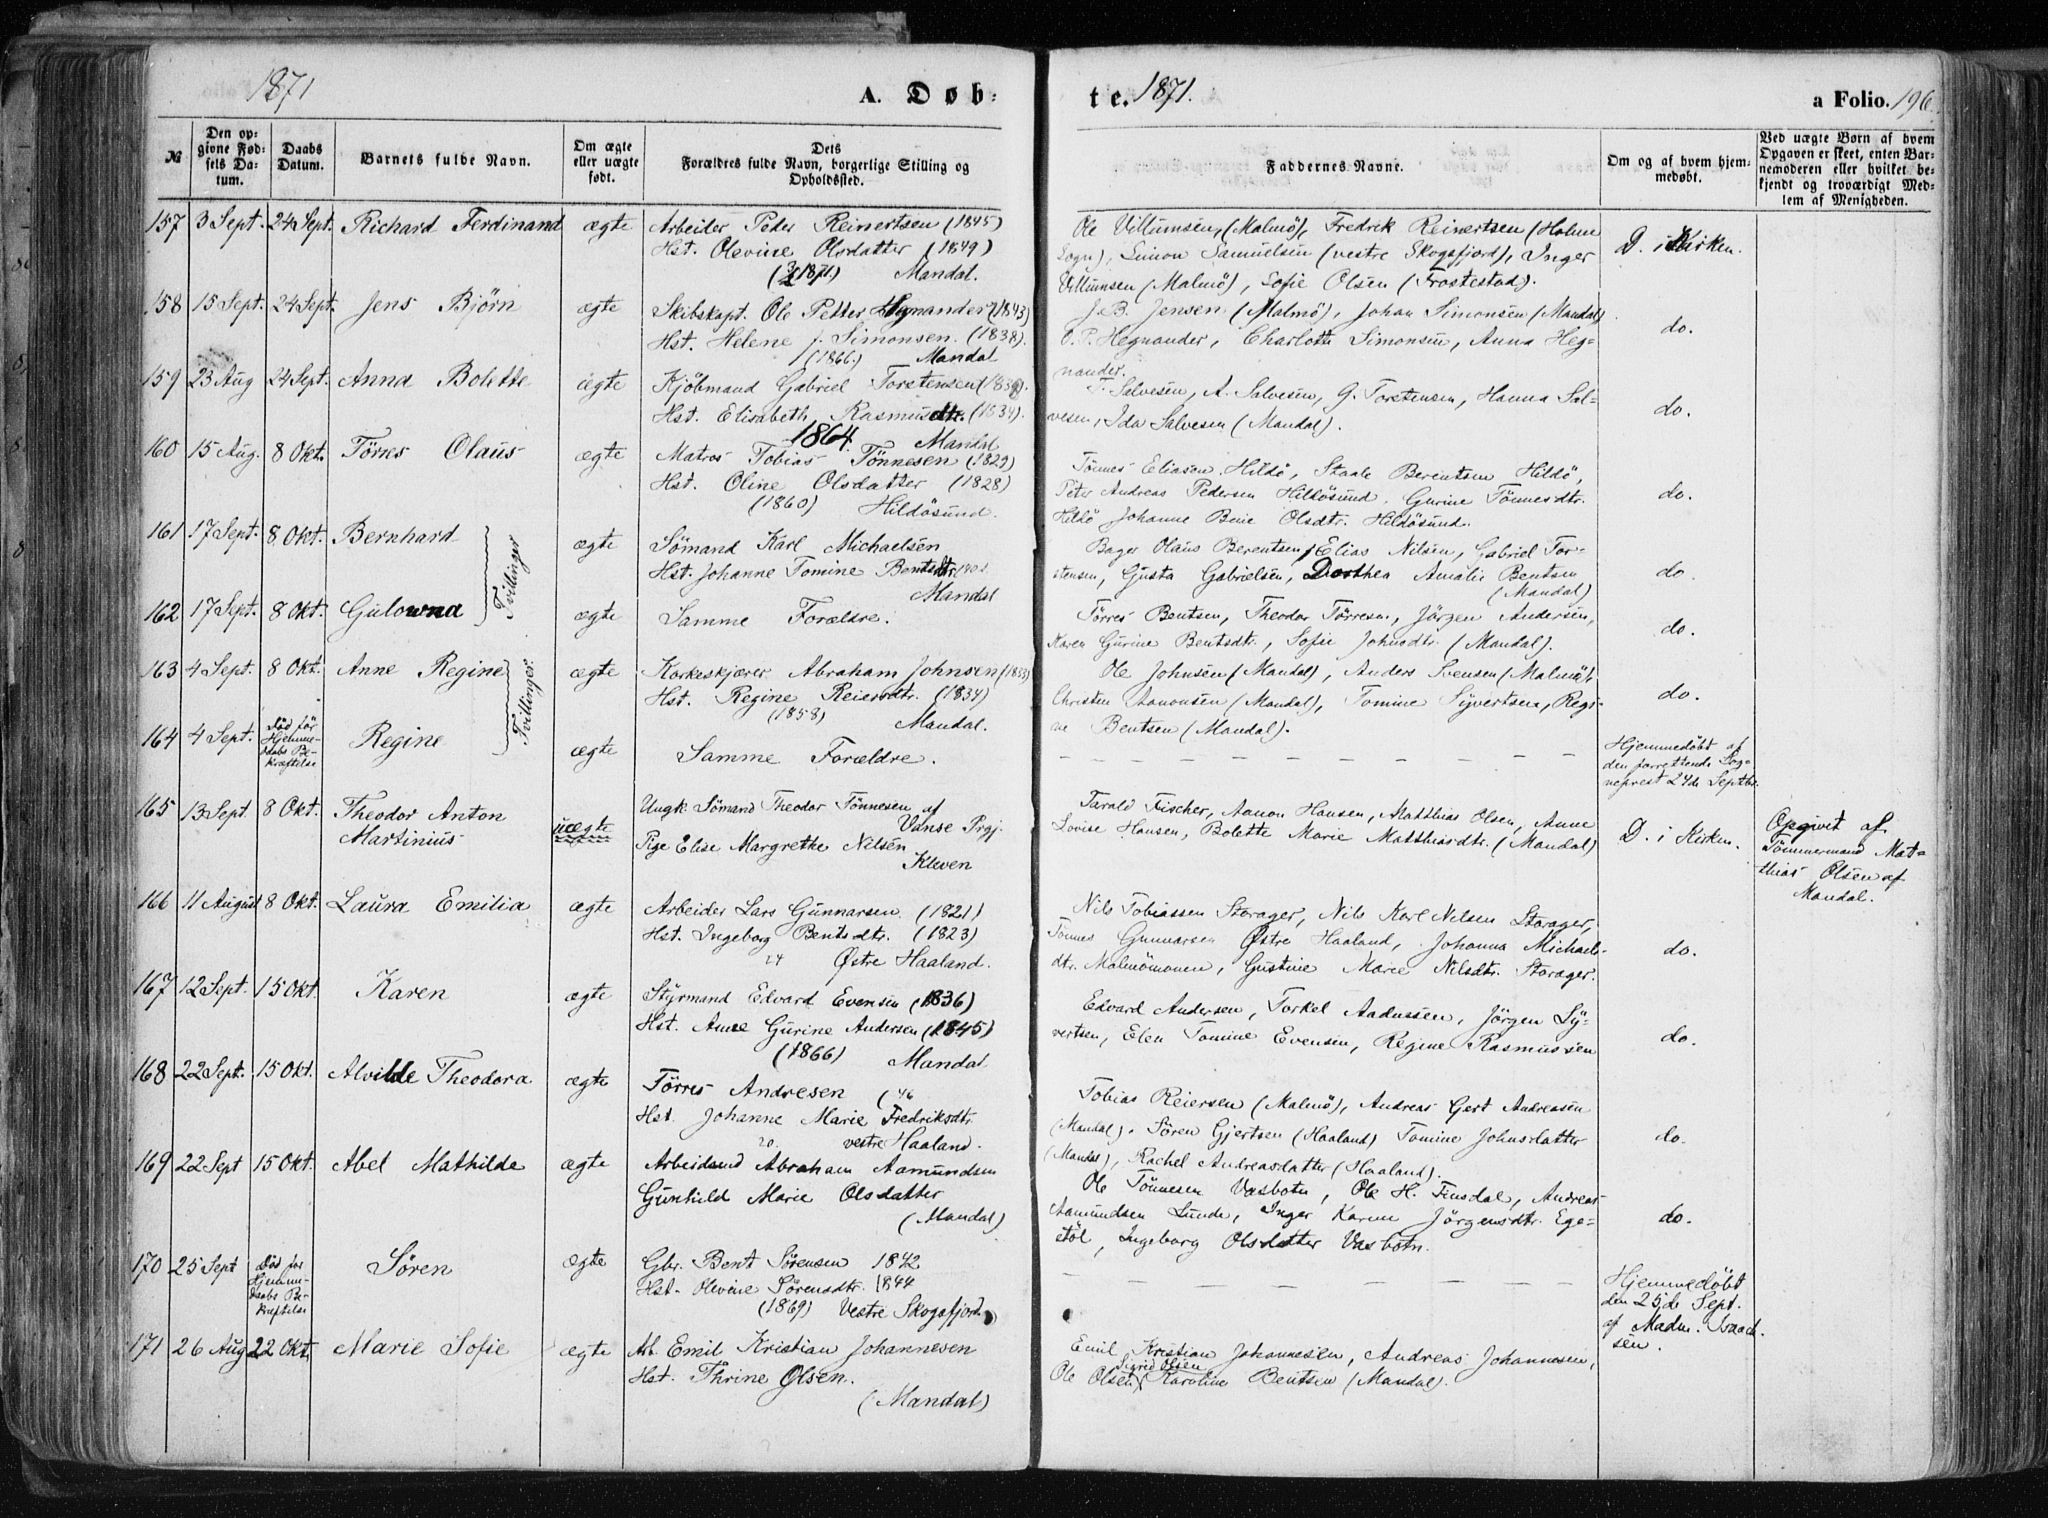 1871
A. Døb=
te. 1871.
a Folio. 196.
№
Den op=
givne Fød=
sels Da=
tum.
Daabs
Datum.
Barnets fulde Navn.
Om ægte
eller uægte
født.
Dets
Forældres fulde Navn, borgerlige Stilling og
Opholdssted.
Faddernes Navne.
Om og af hvem hjem=
medøbt.
Ved uægte Børn af hvem
Opgaven er skeet, enten Bar=
nemoderen eller hvilket be=
kjendt og troværdigt Med=
lem af Menigheden.
157 3 Sept. 24 Sept. Richard Ferdinand ægte Arbeider Peder Reinertsen (1845)
Hst. Olevine Olsdatter (1849)
Mandal.
Ole Villumsen, (Malmö), Fredrik Reinertsen (Holme
Sogn), Simon Samuelsen (vestre Skogsfjord), Inger
Villumsen (Malmö), Sofie Olsen (Frostestad).
D. i Kirken.
158 15 Sept. 24 Sept. Jens Björn ægte Skibskapt. Ole Petter Hegnander (1843)
Hst. Helene f. Simonsen. (1838).
(1866.) Mandal
J. B. Jensen (Malmö), Johan Simonsen (Mandal)
O. P. Hegnander, Charlotte Simonsen, Anna Heg-
nander.
do.
159 23 Aug 24 Sept. Anna Bolette ægte Kjöbmand Gabriel Torstensen
Hst. Elisabeth Rasmusdtr. (1834).
1864. Mandal
T. Salvesen, A. Salvesen, G. Torstensen, Hanna Sal=
vesen, Ida Salvesen (Mandal).
do.
160 15 Aug. 8 Okt. Törres Olaus ægte Matros Tobias Tönnesen (1829)
Hst. Oline Olsdatter (1828)
(1860) Hildösund.
Tönnes Eliasen Hildö, Staale Berentsen Hildö,
Peter Andreas Pedersen Hildösund. Gurine Tönnesdtr.
Hildö Johanne Olsdtr. Hildösund.
do.
161 17 Sept. 8 Okt. Bernhard Tvillinger ægte Sömand Karl Michaelsen
Hst. Johanne Tomine Bentsdtr.
Mandal
Bager Olaus Berentsen, Elias Nilsen, Gabriel Tor=
stensen, Gusta Gabrielsen, Dorthea Amalie Bentsen
(Mandal)
do.
162 17 Sept. 8 Okt. Gulowna ægte Samme Forældre.
Törres Bentsen, Theodor Törresen, Jörgen Andersen,
Karen Gurine Bentsdtr., Sofie Johnsdtr. (Mandal).
do.
163 4 Sept. 8 Okt. Anne Regine Tvillinger. ægte Korkeskjærer Abraham Johnsen (1833)
Hst. Regine Reiersdtr. (1834)
(1858) Mandal.
Ole Johnsen (Mandal), Anders Svensen (Malmö),
Christen Aanonsen (Mandal), Tomine Syvertsen, Regi-
ne Bentsen (Mandal).
do.
164 4 Sept. död för
Hjemme-
daabs Be-
kræftelse
Regine ægte Samme Forældre.
Hjemmedöbt af
den forrettende Sog-
neprest 24de Septbr.
165 13 Sept. 8 Okt. Theodor Anton
Martinius
uægte
Ungk. Sömand Theodor Tönnesen af
Vanse Prgj.
Pige Elise Margrethe Nilsen
Kleven
Tarald Fischer, Aanon Hansen, Matthias Olsen, Anne
Lovise Hansen, Bolette Marie Matthiasdtr. (Mandal)
D. i Kirken.
Opgivet af
Tömmermand Mat=
thias Olsen af
Mandal.
166 11 August 8 Okt. Laura Emilia ægte Arbeider Lars Gunnarsen. (1821)
Hst. Ingeborg Bentsdtr. (1823)
24 Østre Haaland.
Nils Tobiassen Storager, Nils Karl Nilsen Storager,
Tönnes Gunnarsen Østre Haaland, Johanna Michaels-
dtr. Malmömonen, Gustine Marie Nilsdtr. Storager.
do.
167 12 Sept. 15 Okt. Karen ægte Styrmand Edvard Evensen (1836)
Hst. Anne Gurine Andersen (1845)
(1866) Mandal
Edvard Andersen, Torkel Aadnesen, Jörgen Sy-
vertsen, Elen Tomine Evensen, Regine Rasmussen
do.
168 22 Sept. 15 Okt. Alvilde Theodora ægte Törres Andresen (46
Hst. Johanne Marie Fredriksdtr.
20. vestre Haaland.
Tobias Reiersen (Malmö), Andreas Gert Andreasen
(Mandal). Sören Gjertsen (Haaland) Tomine Johnsdatter
(Mandal), Rachel Andreasdatter (Haaland).
do.
169 22 Sept 15 Okt. Abel Mathilde ægte Arbeidsmd Abraham Aamundsen
Gunhild Marie Olsdatter
(Mandal)
Ole Tönnesen Vasbotn, Ole H. Finsdal, Andreas
Aamundsen Lunde, Inger Karine Jörgensdtr. Ege=
stöl, Ingeborg Olsdatter Vasbotn.
do.
170 25 Sept Död for
Hjemme-
daabs Be-
kræftelse
Søren ægte Gbr. Bent Sørensen 1842
Hst. Olevine Sörensdtr. 1844
(1869) Vestre Skogsfjord
Hjemmedøbt
den 25de Sept.
af Madm. Isaach-
sen.
171 26 Aug 22 Okt. Marie Sofie ægte Arb. Emil Kristian Johannesen
Hst. Thrine Olsen.
(Mandal)
Emil Kristian Johannesen, Andreas Johannesen,
Sigrid Olsen
Ole Olsen, Karoline Bentsen (Mandal).